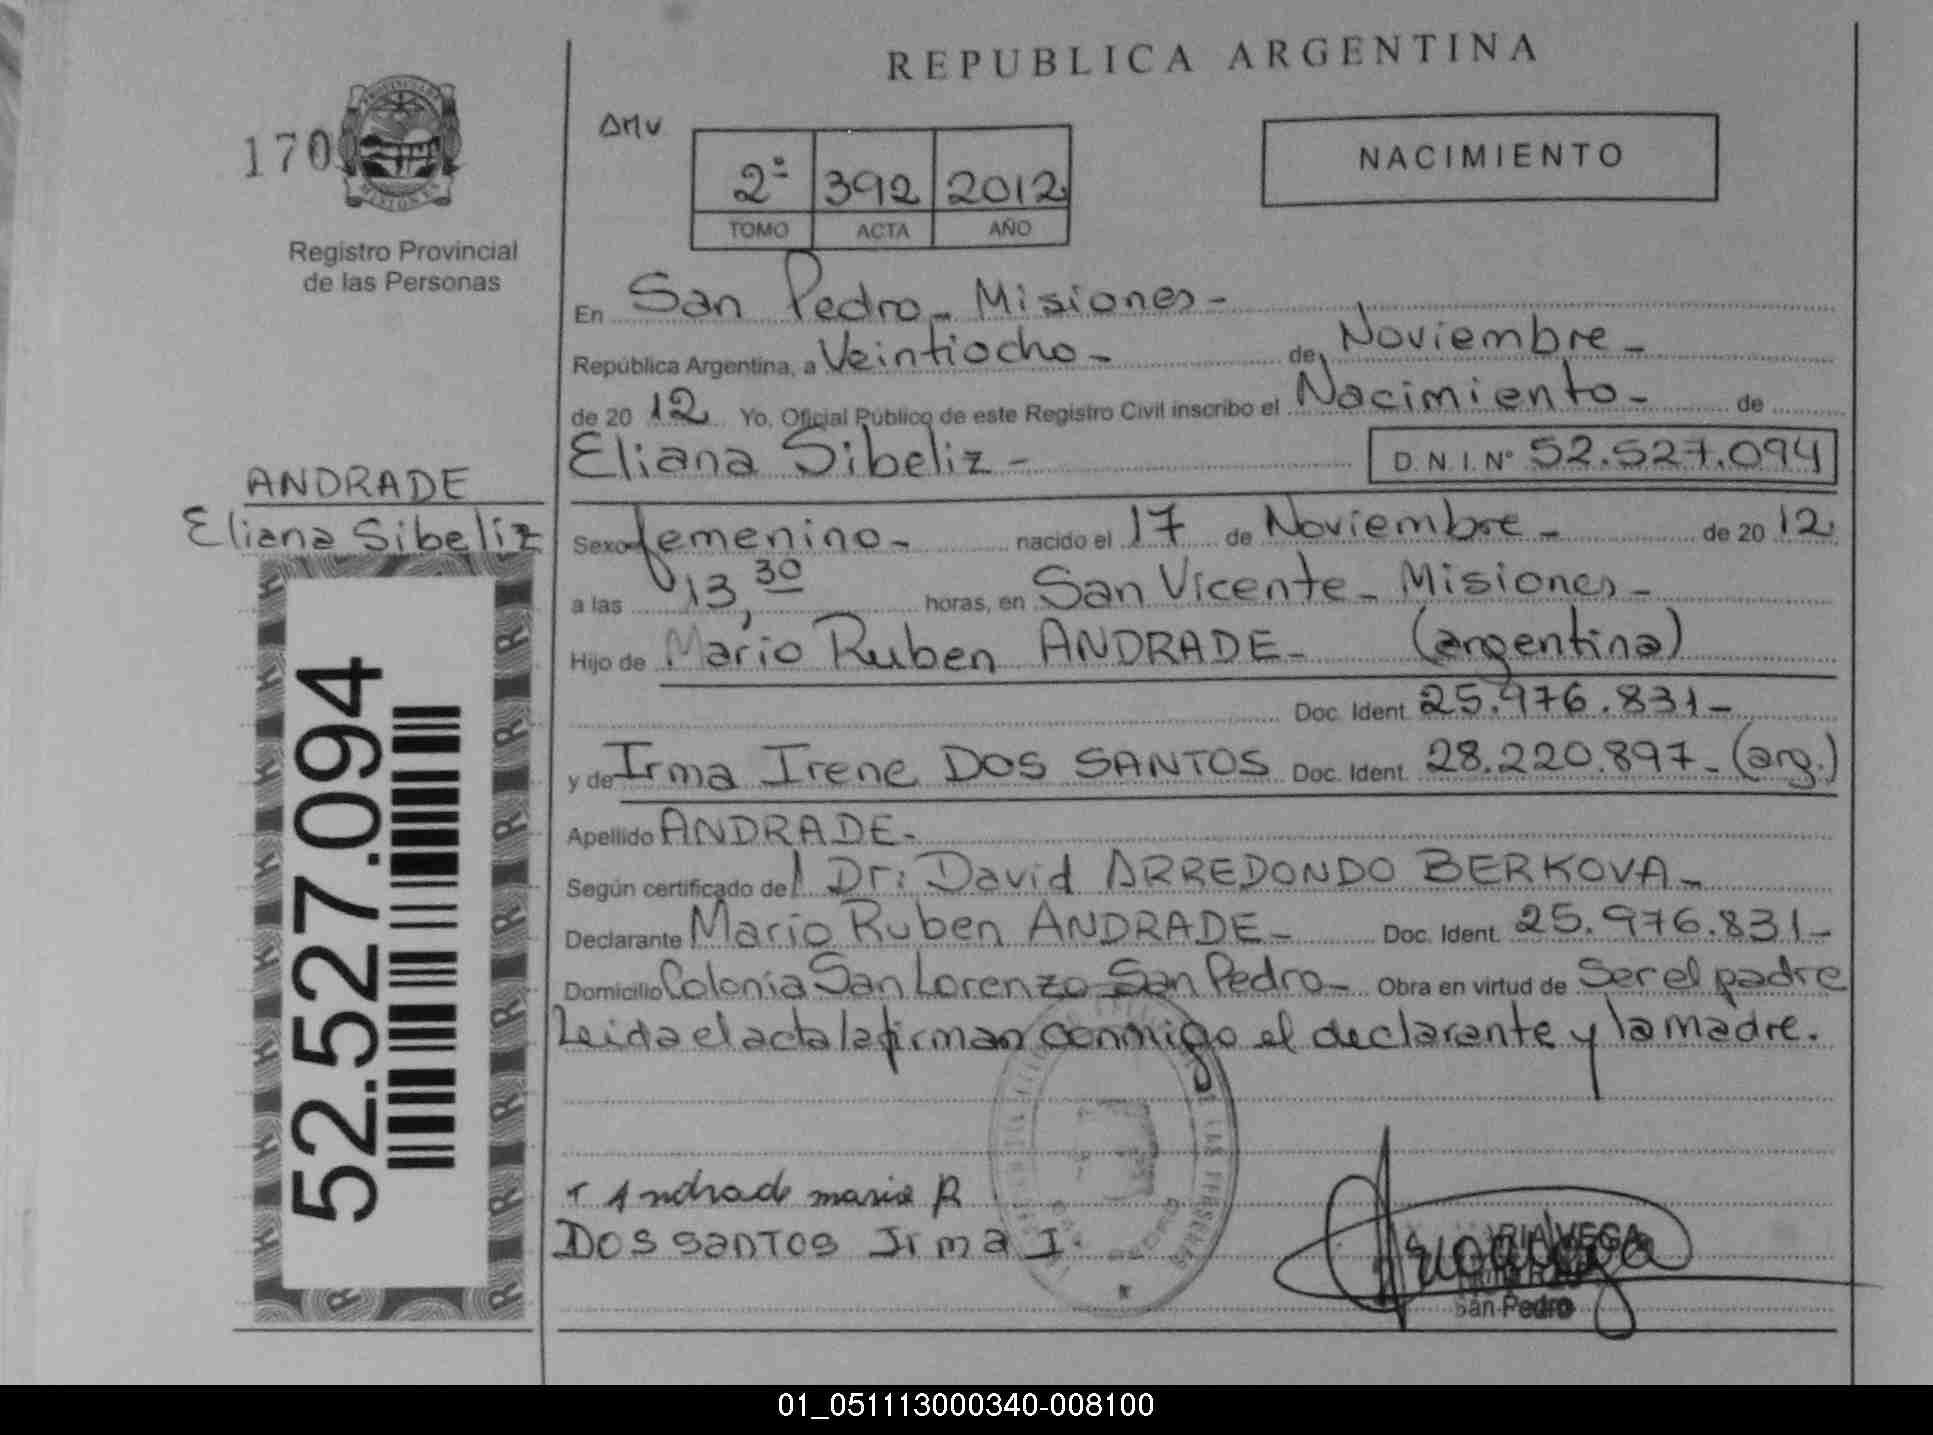 REPUBLICA ARGENTINA
170
AMV
2º 392 2012
TOMO ACTA AÑO
NACIMIENTO
PROVINCIA DE MISIONES
Registro Provincial
de las Personas
En San Pedro - Misiones -
República Argentina, a Veintiocho - de Noviembre -
de 20 12 Yo, Oficial Público de este Registro Civil inscribo el Nacimiento - de
Eliana Sibeliz - D.N.I. Nº 52.527.094
ANDRADE
Eliana Sibeliz
Sexo femenino - nacido el 17 de Noviembre - de 20 12
a las 13,30 horas, en San Vicente - Misiones -
Hijo de Mario Ruben ANDRADE - (argentina)
Doc. Ident. 25.976.831 -
y de Irma Irene DOS SANTOS Doc. Ident. 28.220.897 - (arg.)
Apellido ANDRADE -
Según certificado del Dr: David ARREDONDO BERKOVA -
Declarante Mario Ruben ANDRADE - Doc. Ident. 25.976.831 -
Domicilio Colonia San Lorenzo San Pedro - Obra en virtud de Ser el padre
Leida el acta la firman conmigo el declarante y la madre.
52.527.094
Andrade mario R
Dos santos Irma I.
VEGA
San Pedro
01_051113000340-008100